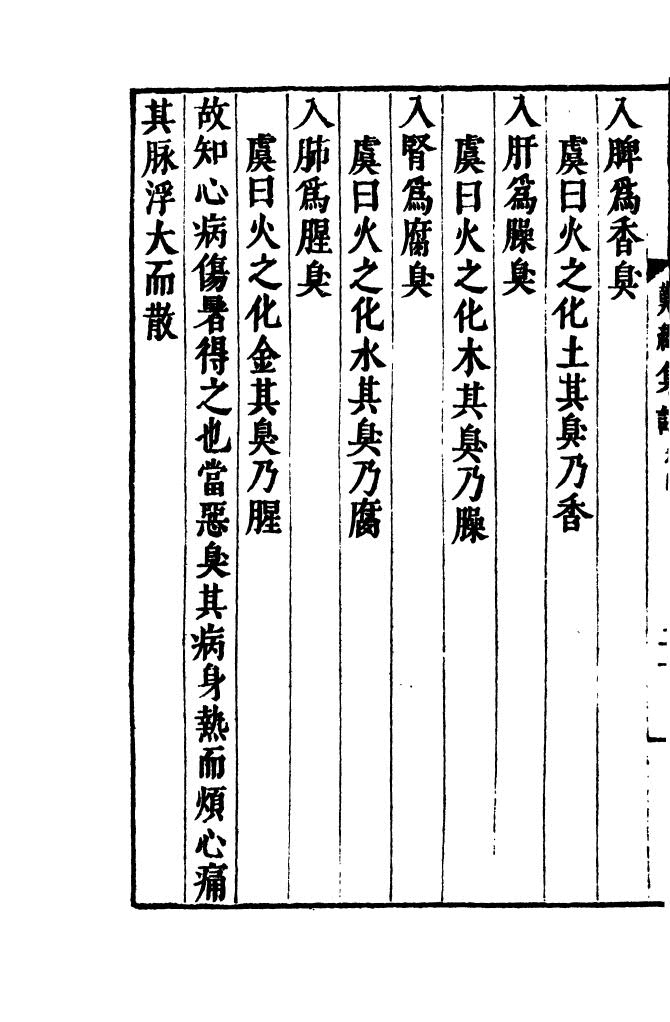 入脾爲香臭
虞曰火之化土其臭乃香
入肝爲臊臭
虞曰火之化木其臭乃臊
入腎爲腐臭
虞曰火之化水其臭乃腐
入肺爲腥臭
虞曰火之化金其臭乃腥
故知心病傷暑得之也當惡臭其病身熱而煩心痛
其脉浮大而散